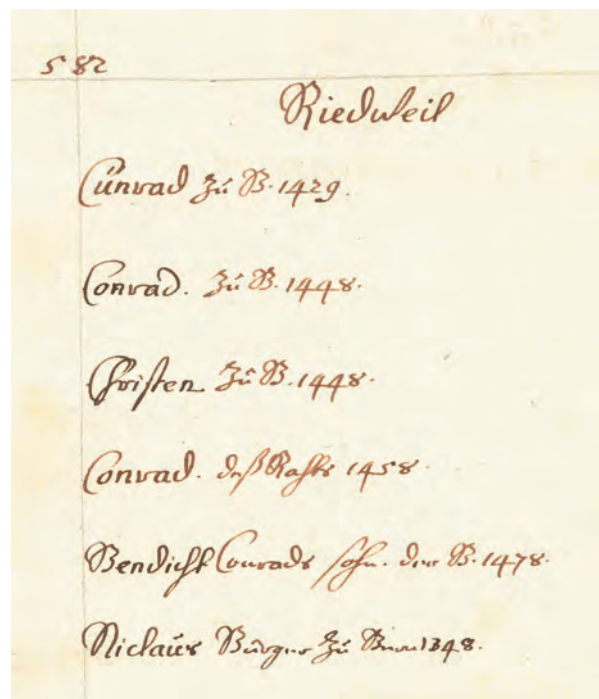 582
Riedweil
Cunrad zu B. 1429.
Conrad. zu B. 1448.
Christen zu B. 1448.
Conrad. deß Rahts 1458.
Bendicht Conrads sohn. der B. 1478.
Niclaus Burger zu Bern 1348.